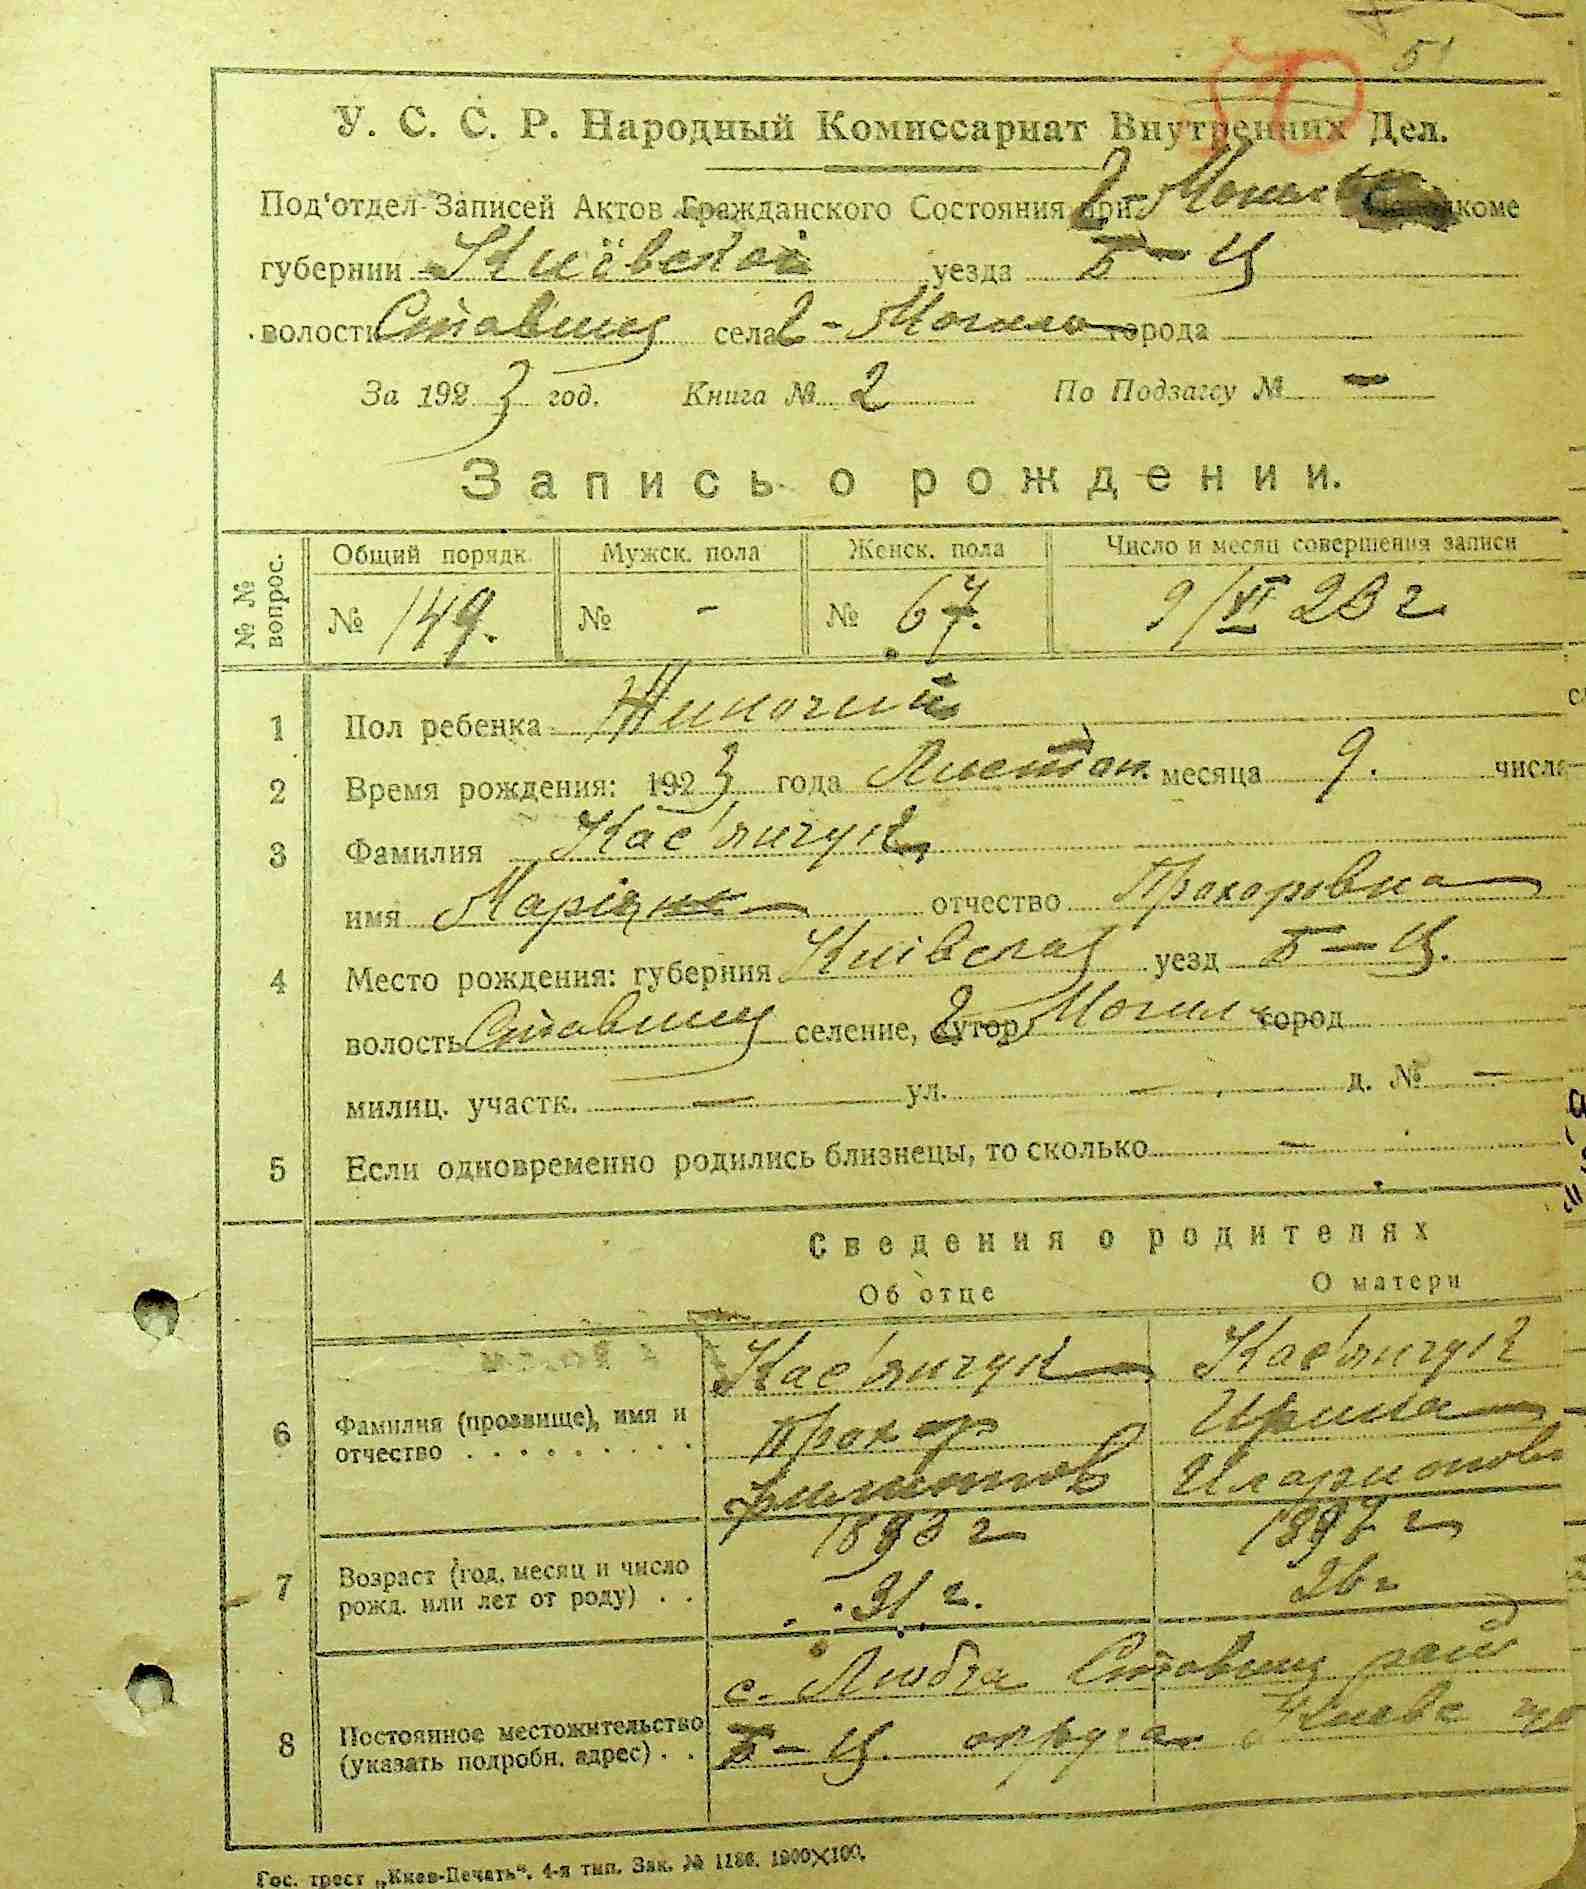 51
50
У. С. С. Р. Народный Комиссариат Внутренних Дел.
Под'отдел Записей Актов Гражданского Состояния при 2-Могил коме
губернии Київської уезда Б-Ц
волости Ставищ села 2-Могила города
За 1923 год. Книга № 2 По Подзагсу № —
Запись о рождении.
№ № вопрос. Общий порядк. Мужск. пола Женск. пола Число и месяц совершения записи
№ 149. № - № 67. 9/VI 23 г
1 Пол ребенка Жиночий
2 Время рождения: 1923 года Листоп. месяца 9. числа
3 Фамилия Кас'янчук
имя Марія отчество Прохоровна
4 Место рождения: губерния Київская уезд Б-Ц.
волость Ставищ селение, хутор 2 Могил город
милиц. участк. — ул. — д. № —
5 Если одновременно родились близнецы, то сколько —
Сведения о родителях
Об отце О матери
Кас'янчук Кас'янчук
6 Фамилия (прозвище), имя и Прохор Ирина
отчество . . . . . . . . . Филипов Иларионов
1893 г 1897 г
7 Возраст (год, месяц и число
рожд. или лет от роду) . . 31 г. 26 г
с. Любча Ставищ рай
8 Постоянное местожительство Б-Ц. округа Киеве
(указать подробн. адрес) . .
Гос. трест „Киев-Печать“. 4-я тип. Зак. № 1186. 1900×100.